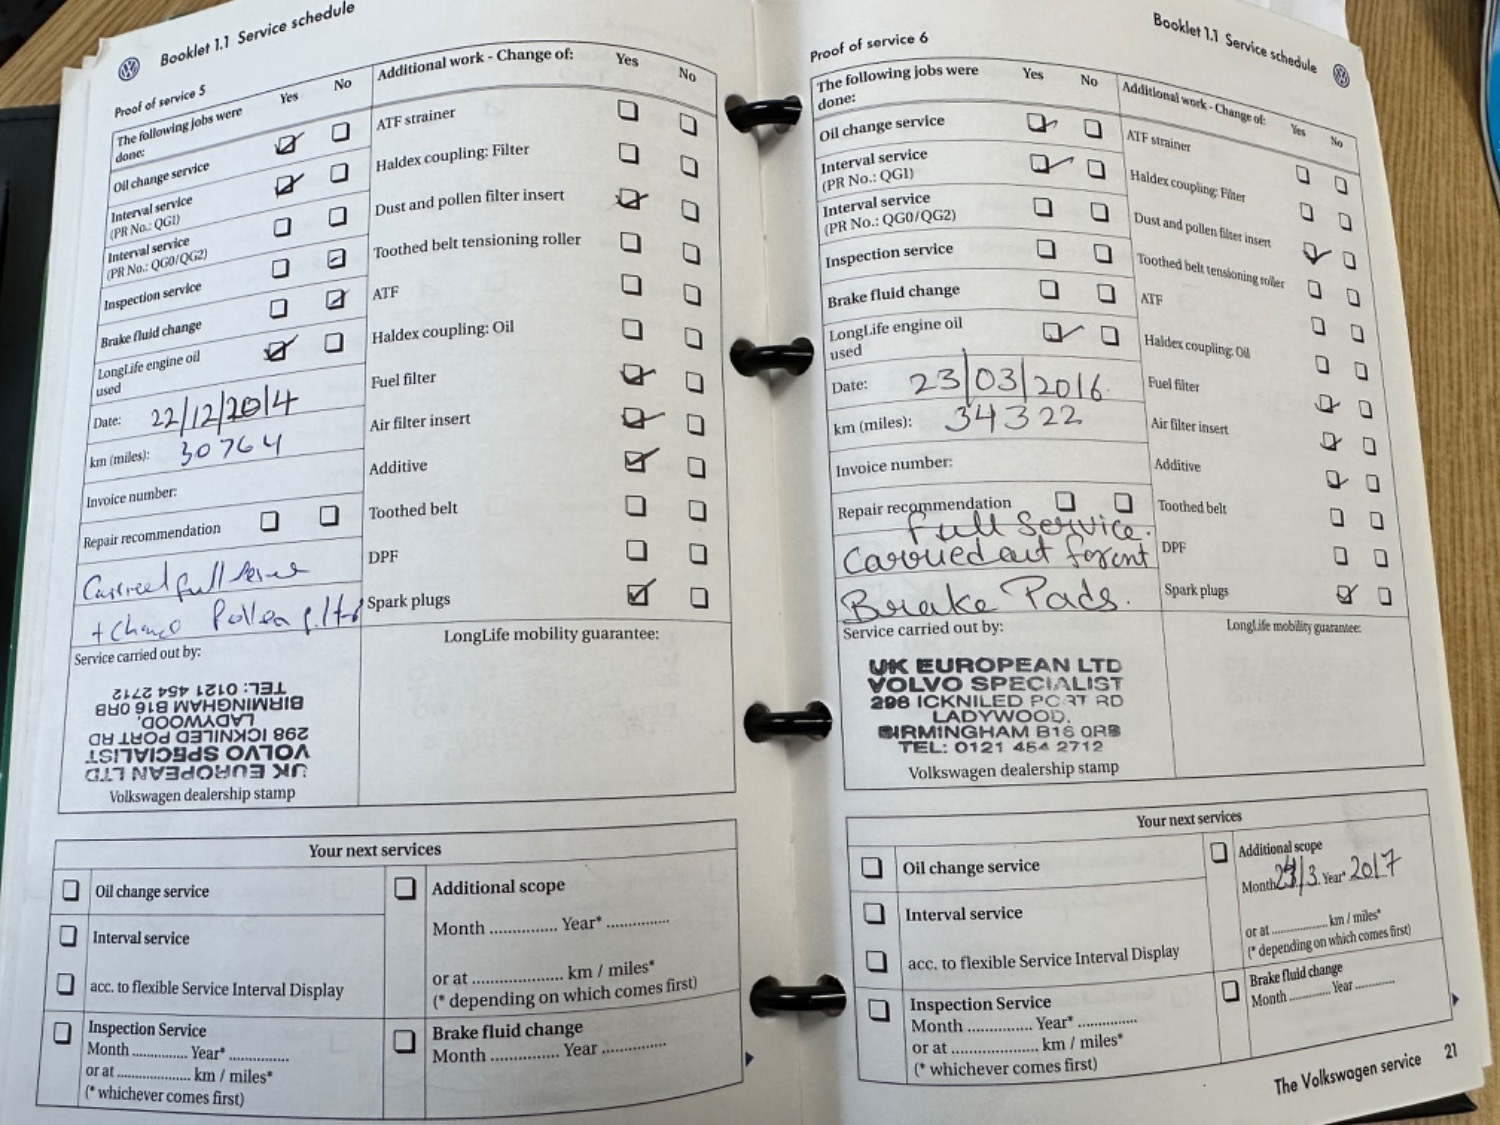 Booklet 1.1 Service schedule
Proof of service 5
The following jobs were done:
Yes
No
Oil change service
Interval service
(PR No.: QG1)
Interval service
(PR No.: QG0/QG2)
Inspection service
Brake fluid change
LongLife engine oil
used
Date: 22/12/2014
km (miles): 30764
Invoice number:
Repair recommendation
full
+ Change Pollen
Service carried out by:
UK EUROPEAN LTD
VOLVO SPECIALIST
298 ICKNIELD PORT RD
LADYWOOD,
BIRMINGHAM B16 0RB
TEL: 0121 454 2712
Volkswagen dealership stamp
Additional work - Change of:
Yes
No
ATF strainer
Haldex coupling: Filter
Dust and pollen filter insert
Toothed belt tensioning roller
ATF
Haldex coupling: Oil
Fuel filter
Air filter insert
Additive
Toothed belt
DPF
Spark plugs
LongLife mobility guarantee:
Your next services
Oil change service
Interval service
acc. to flexible Service Interval Display
Inspection Service
Month ............... Year* ...............
or at .................... km / miles*
(* whichever comes first)
Additional scope
Month ............... Year* ...............
or at .................... km / miles*
(* depending on which comes first)
Brake fluid change
Month ............... Year ...............
Booklet 1.1 Service schedule
Proof of service 6
The following jobs were
done:
Yes
No
Oil change service
Interval service
(PR No.: QG1)
Interval service
(PR No.: QG0/QG2)
Inspection service
Brake fluid change
LongLife engine oil
used
Date: 23/03/2016.
km (miles): 34322
Invoice number:
Repair recommendation
Full Service.
Carried out
Brake Pads.
Service carried out by:
UK EUROPEAN LTD
VOLVO SPECIALIST
298 ICKNILED PORT RD
LADYWOOD,
BIRMINGHAM B16 0RB
TEL: 0121 454 2712
Volkswagen dealership stamp
Additional work - Change of:
Yes
No
ATF strainer
Haldex coupling: Filter
Dust and pollen filter insert
Toothed belt tensioning roller
ATF
Haldex coupling: Oil
Fuel filter
Air filter insert
Additive
Toothed belt
DPF
Spark plugs
LongLife mobility guarantee:
Your next services
Oil change service
Interval service
acc. to flexible Service Interval Display
Inspection Service
Month ............... Year* ...............
or at .................... km / miles*
(* whichever comes first)
Additional scope
Month /3. Year* 2017
or at .................... km / miles*
(* depending on which comes first)
Brake fluid change
Month ............ Year ............
The Volkswagen service 21